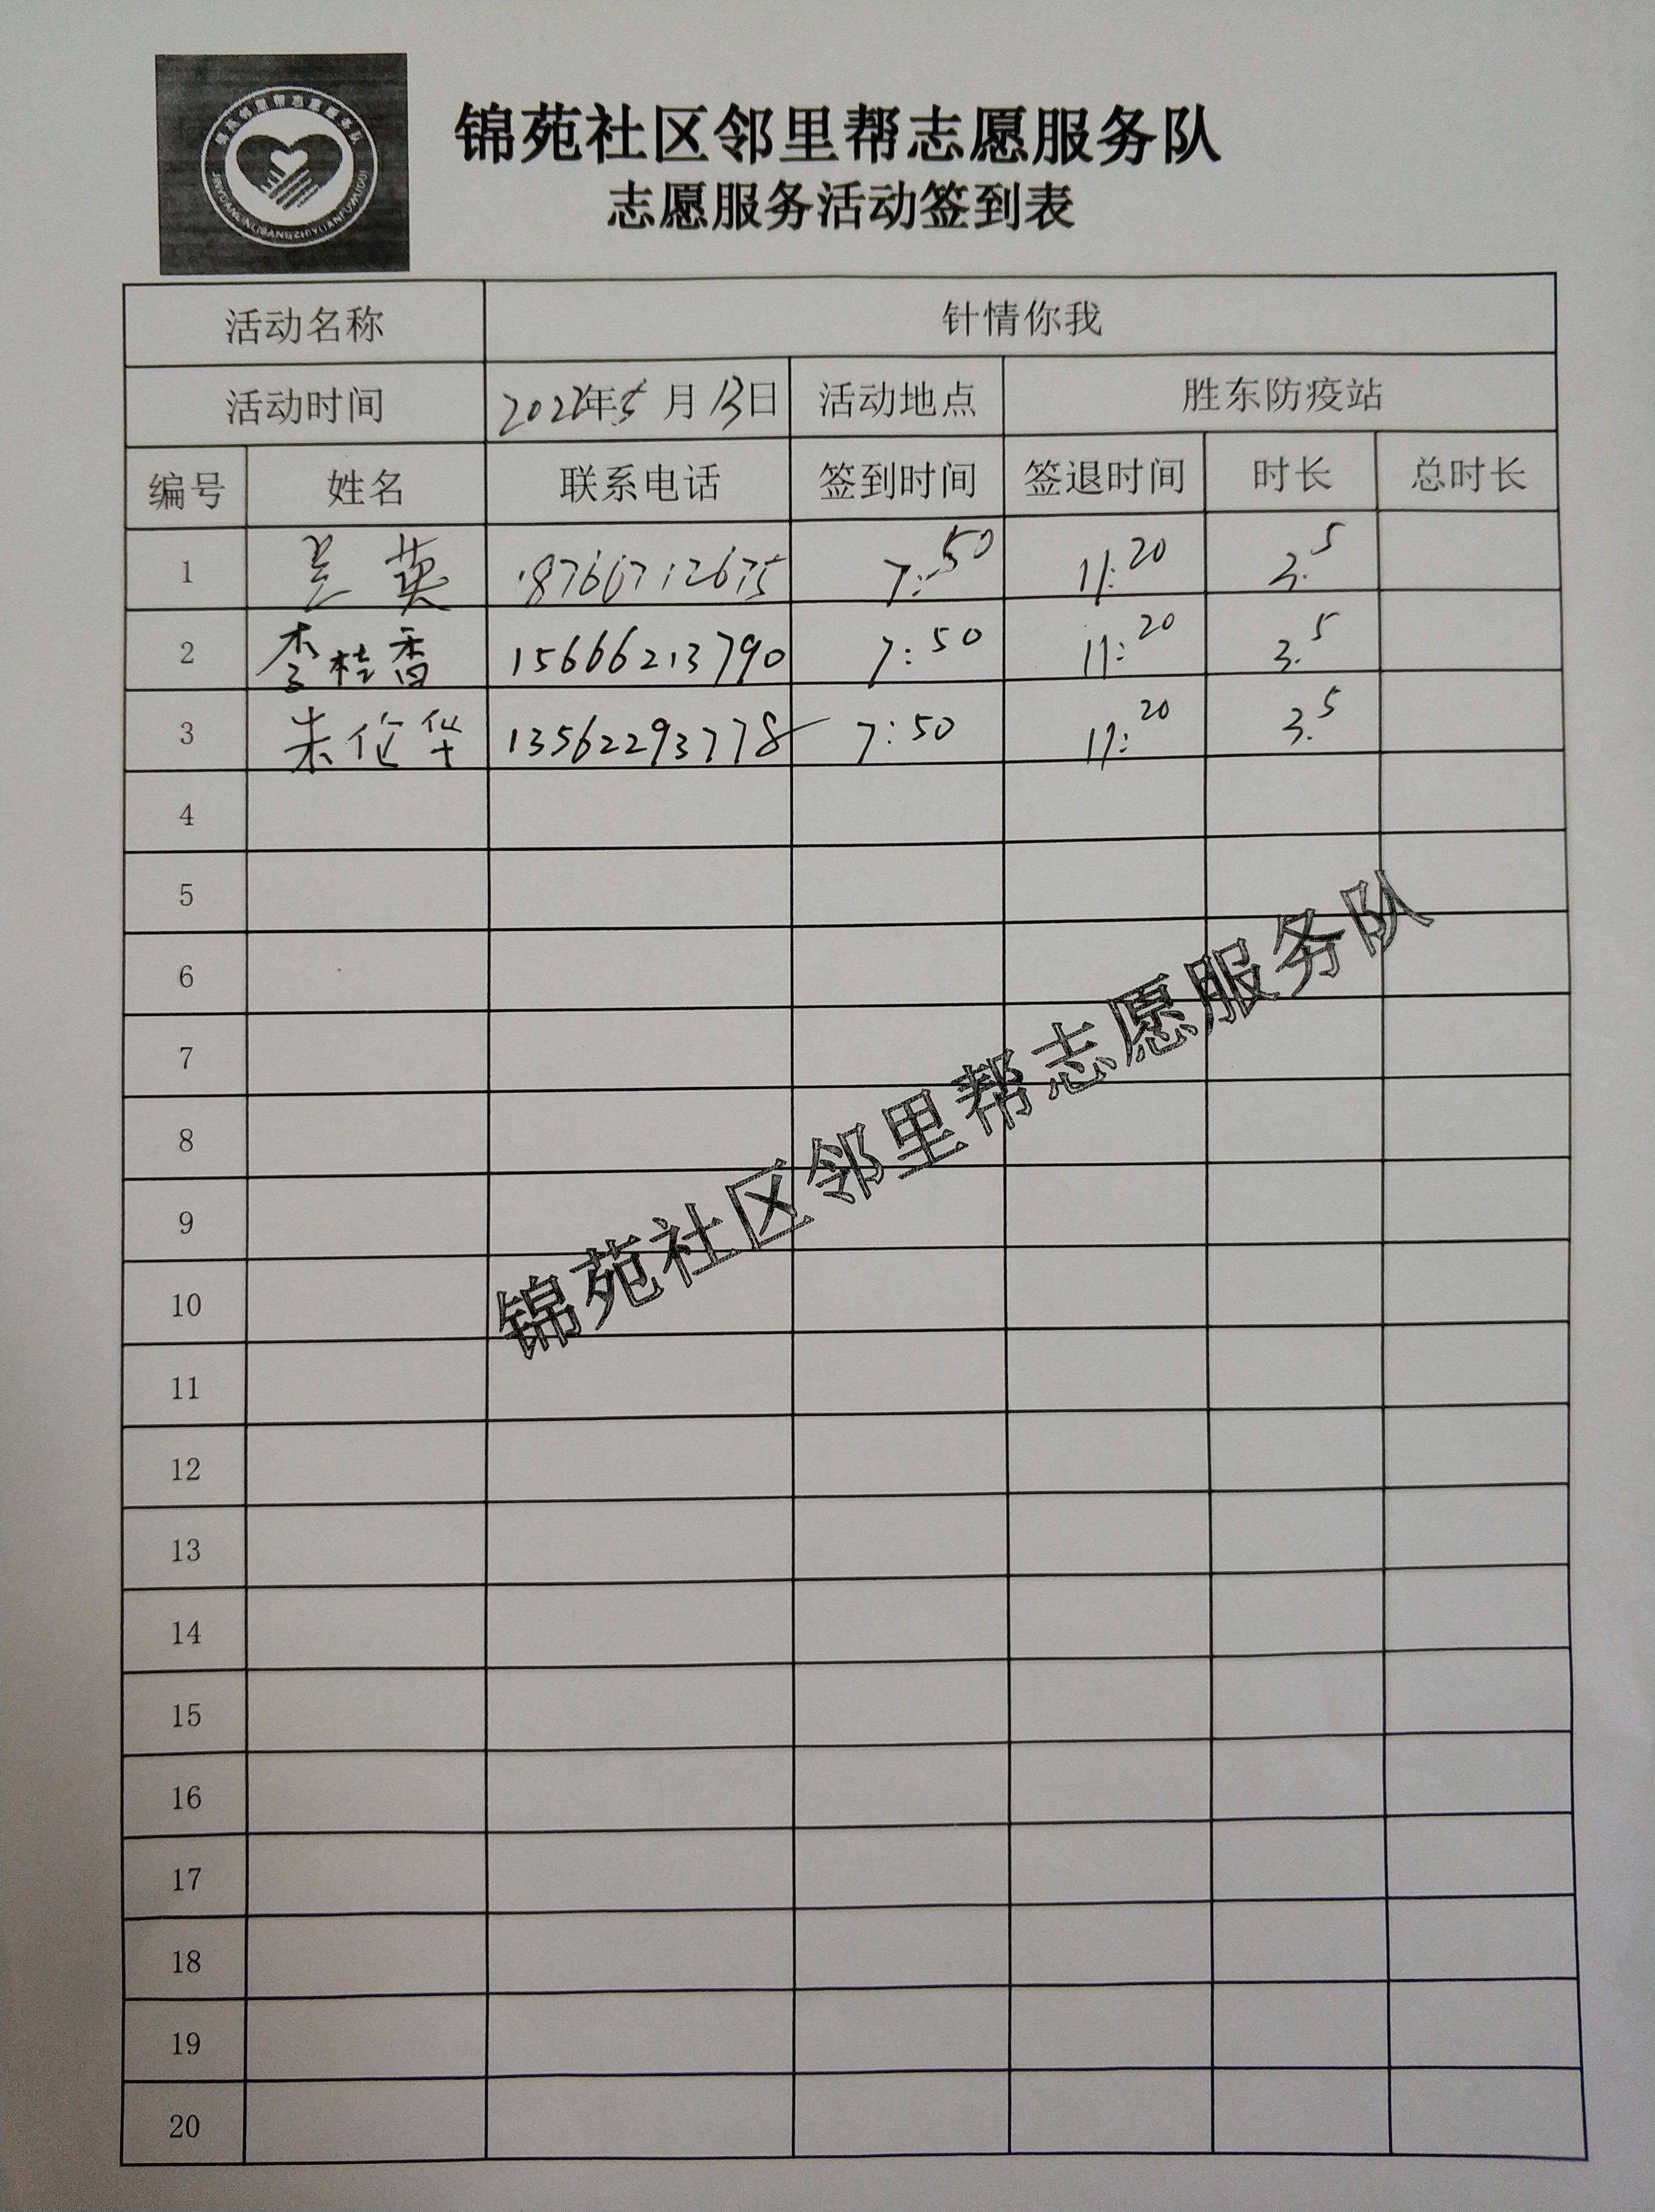 锦苑社区邻里帮志愿服务队
志愿服务活动签到表
活动名称 针情你我
活动时间 2022年5月13日 活动地点 胜东防疫站
编号 姓名 联系电话 签到时间 签退时间 时长 总时长
1 英 18766712675 7:50 11:20 3.5
2 李桂香 15666213790 7:50 11:20 3.5
3 朱 华 13562293778 7:50 11:20 3.5
4
5
6
7
8
9
10
11
12
13
14
15
16
17
18
19
20
锦苑社区邻里帮志愿服务队